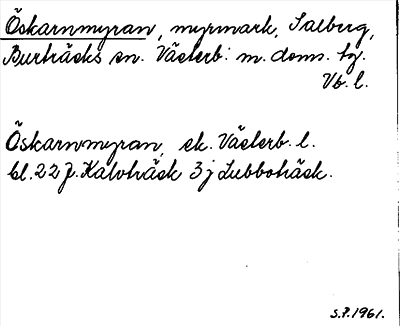 Öskarnmyran, myrmark, Salberg,
Burträsks sn. Västerb: m. doms. hg.
Vb. l.
Öskarnmyran, ek. Västerb. l.
bl. 22 J. Kalvträsk 3 j Lubboträsk.
S.P. 1961.